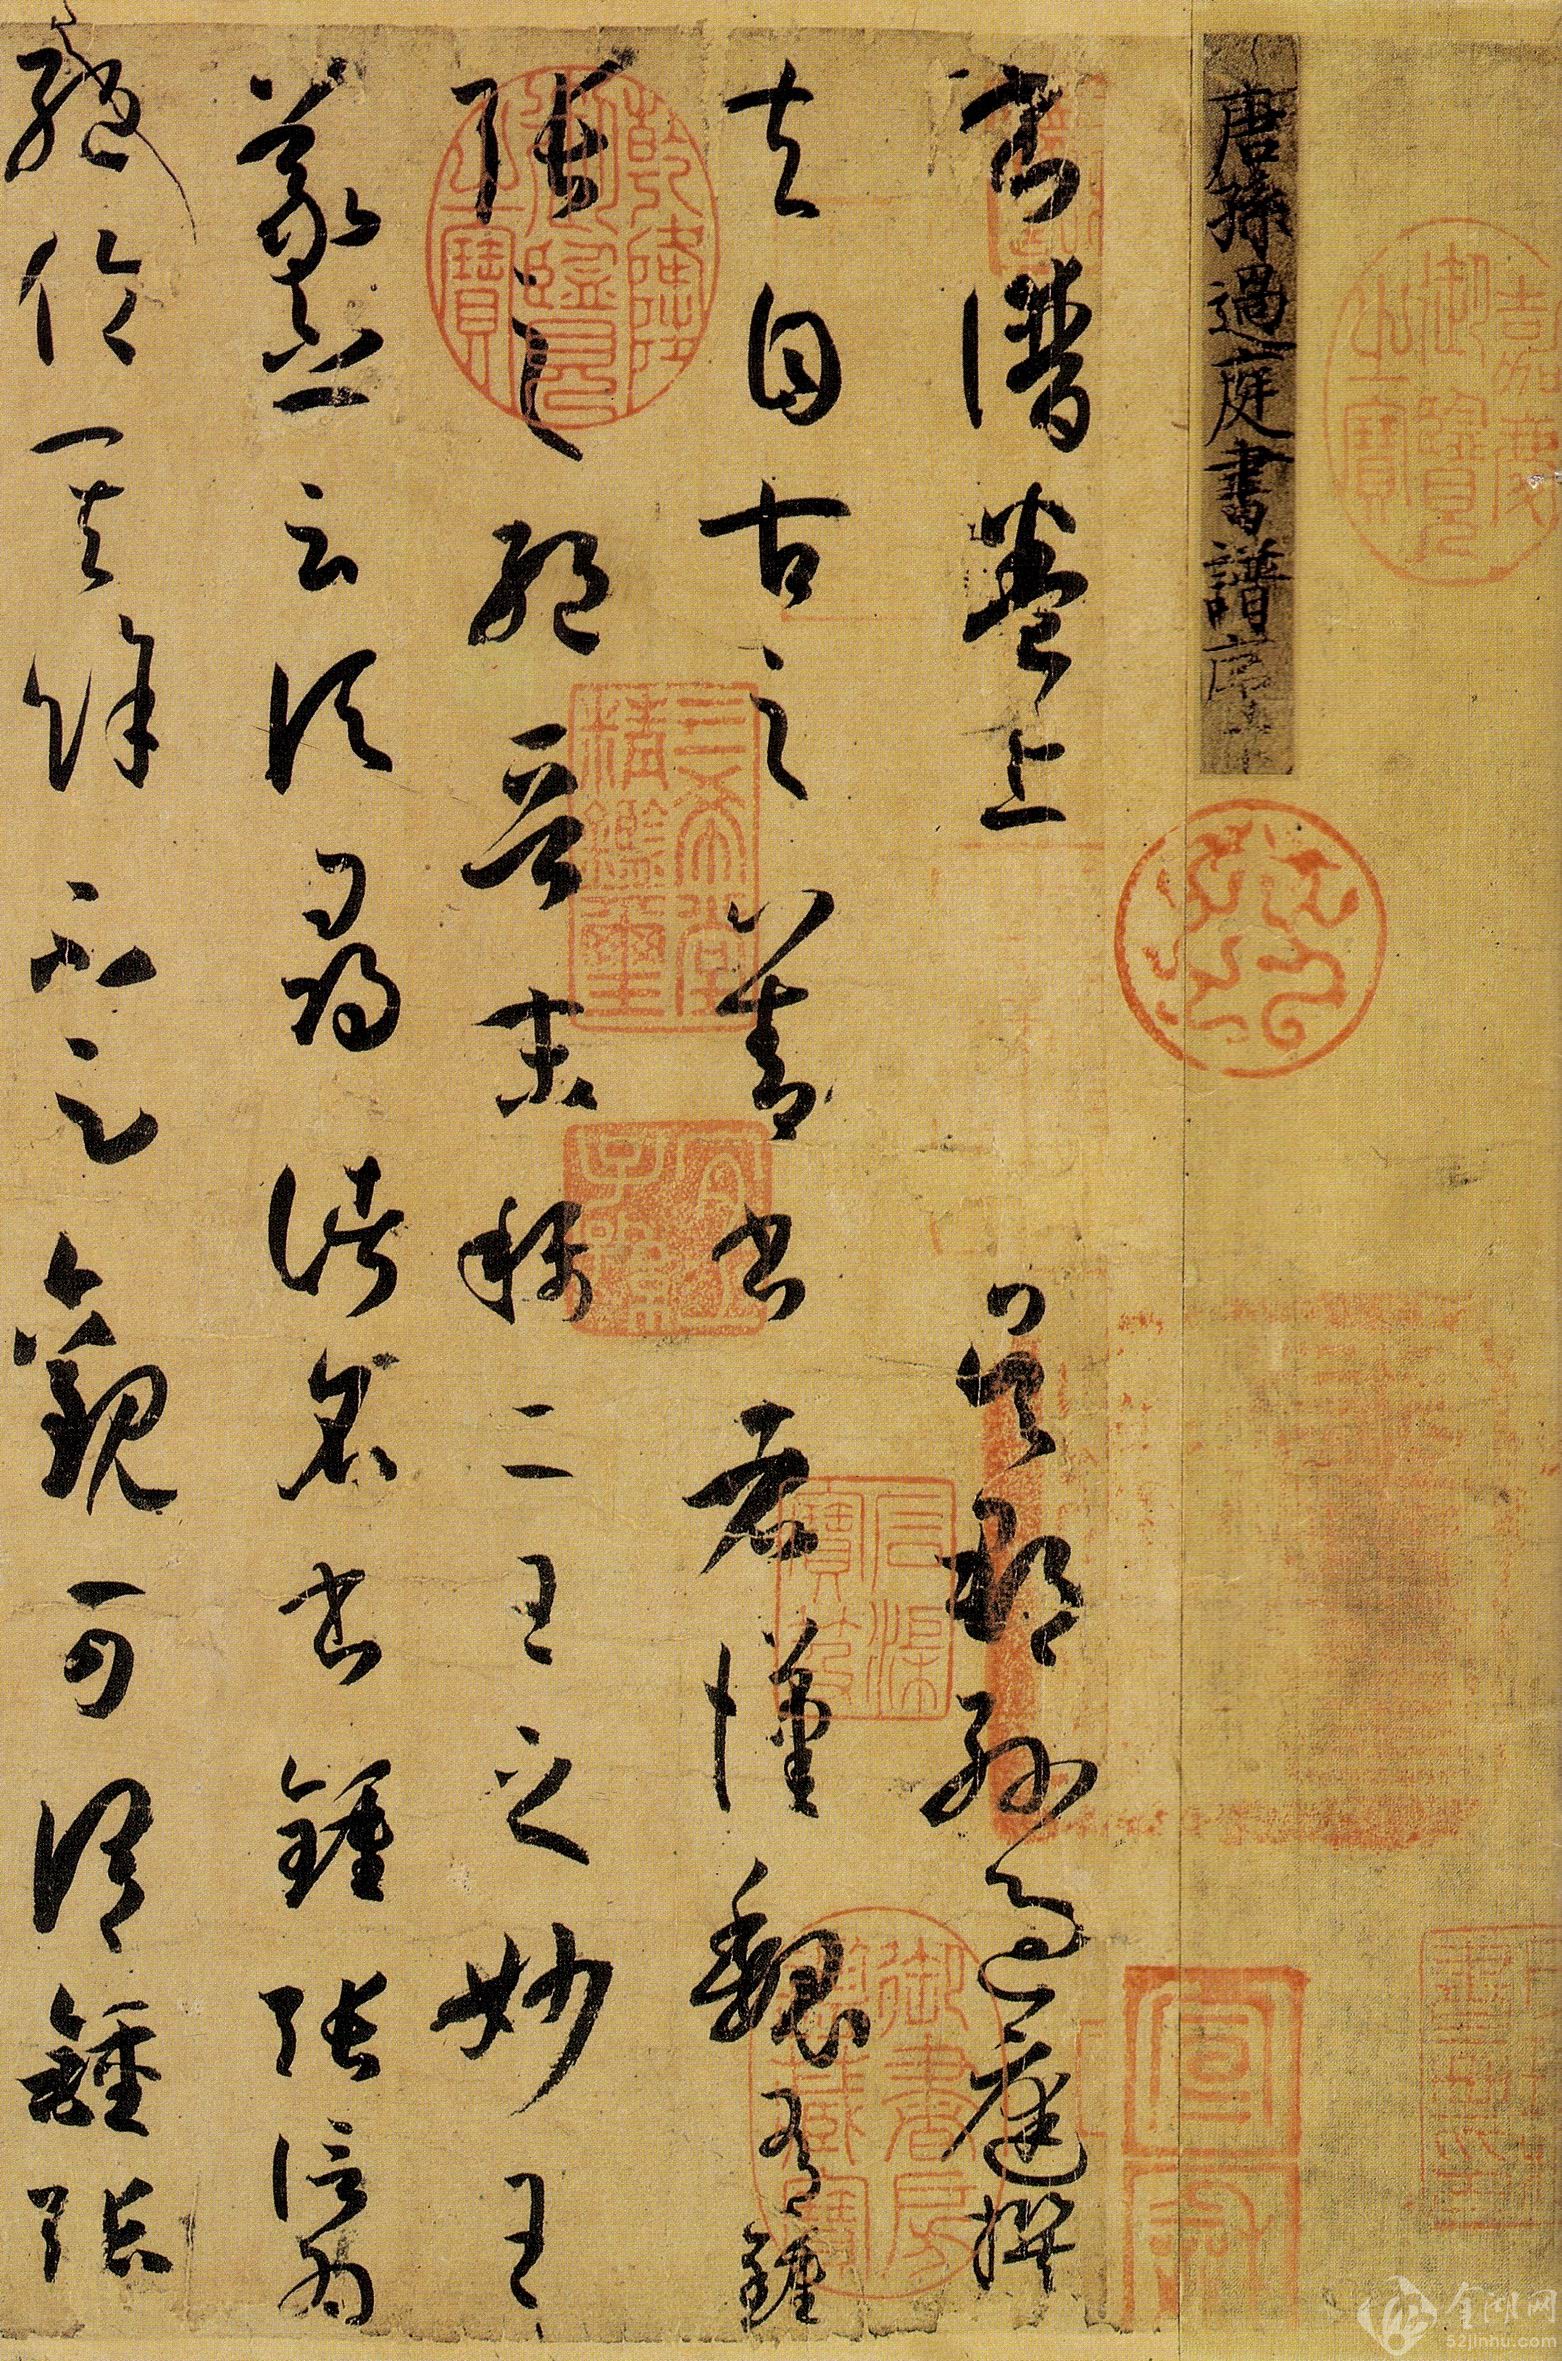 嘉慶御覽之寶
唐孫過庭書譜序
書譜卷上 吳郡孫過庭撰
夫自古之善書者漢魏有鍾
張之絕晉末稱二王之妙王
羲之云頃尋諸名書鍾張信為
絕倫其餘不足觀可謂鍾張
乾隆御覽之寶
三希堂精鑑璽
宜子孫
石渠寶笈
御書房鑒藏寶
宣和
金湖网
52jinhu.com